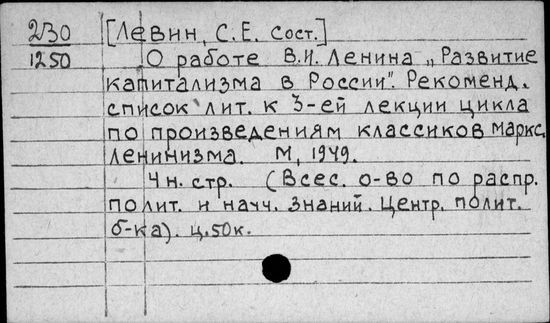 230 [Левин, С.Е. Сост.]
1250 О работе В.И. Ленина „Развитие
капитализма в России". Рекоменд.
список лит. к 3-ей лекции цикла
по произведениям классиков маркс.
ленинизма. М, 1949.
4 н. стр. (Всес. о-во по распр.
полит. и научн. знаний. Центр. полит.
б-ка). ц. 50к.